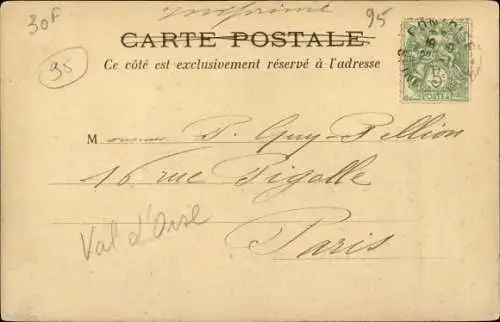 30F
imprimé
95
95
CARTE POSTALE
Ce côté est exclusivement réservé à l'adresse
5
POSTES
Monsieur P. Guy-Pellion
16 rue Pigalle
Val d'Oise
Paris